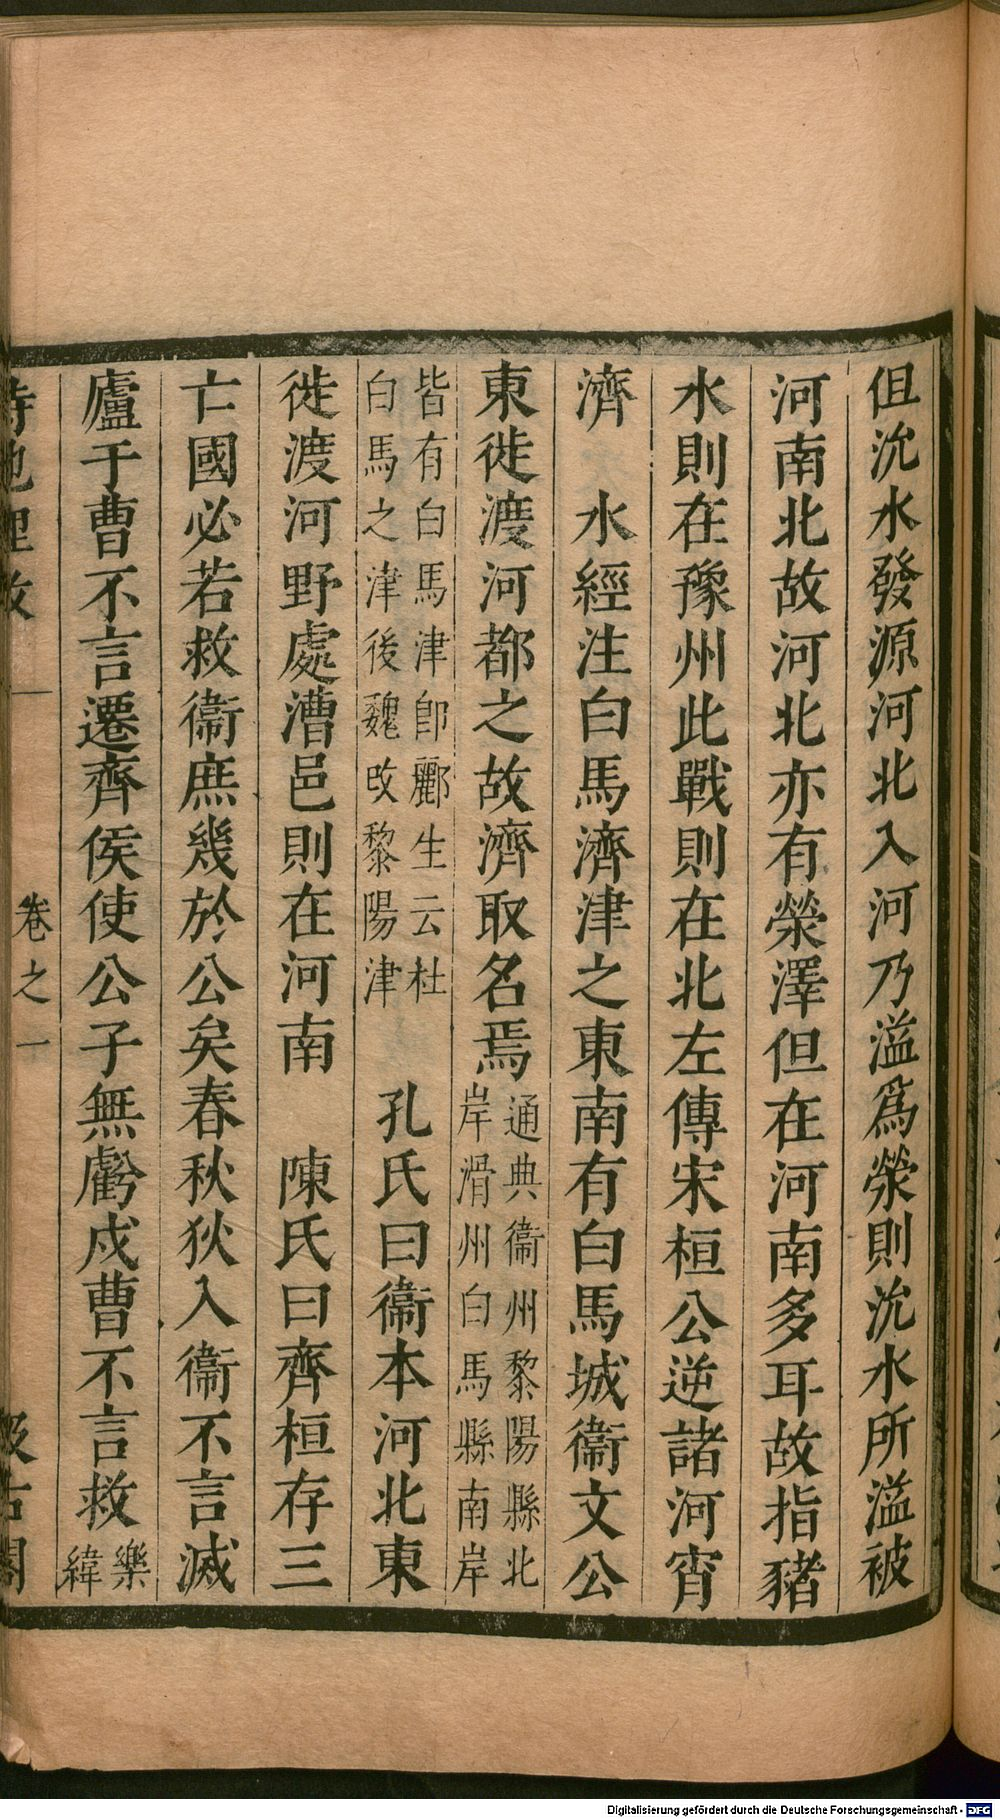 但沇水發源河北入河乃溢爲滎則沇水所溢被
河南北故河北亦有滎澤但在河南多耳故指豬
水則在豫州此戰則在北左傳宋桓公逆諸河宵
濟　水經注白馬濟津之東南有白馬城衞文公
東徙渡河都之故濟取名焉通典衞州黎陽縣北岸滑州白馬縣南岸
皆有白馬津卽酈生云杜白馬之津後魏改黎陽津　孔氏曰衞本河北東
徙渡河野處漕邑則在河南　陳氏曰齊桓存三
亡國必若救衞庶幾於公矣春秋狄入衞不言滅
廬于曹不言遷齊侯使公子無虧戍曹不言救樂緯
詩地理攷　卷之一　汲古閣
Digitalisierung gefördert durch die Deutsche Forschungsgemeinschaft - DFG